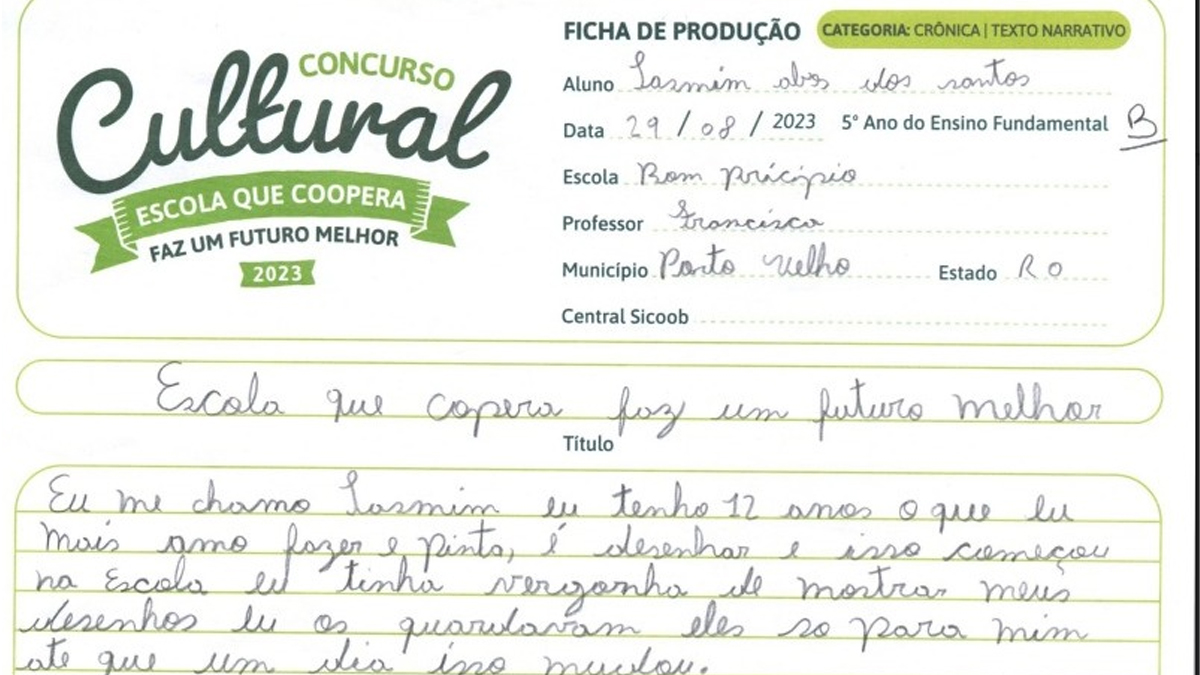 CONCURSO
Cultural
ESCOLA QUE COOPERA
FAZ UM FUTURO MELHOR
2023
FICHA DE PRODUÇÃO CATEGORIA: CRÔNICA | TEXTO NARRATIVO
Aluno Iasmim dos santos
Data 29 / 08 / 2023 5º Ano do Ensino Fundamental B
Escola Bom pricípio
Professor Francisca
Município Porto Velho Estado RO
Central Sicoob
Escola que copera faz um futuro melhor
Título
Eu me chamo Iasmim eu tenho 12 anos o que eu
mais amo fazer e pinta, é desenhar e isso começou
na Escola eu tinha vergonha de mostrar meus
desenhos eu os guardavam eles so para mim
ate que um dia isso mudou.